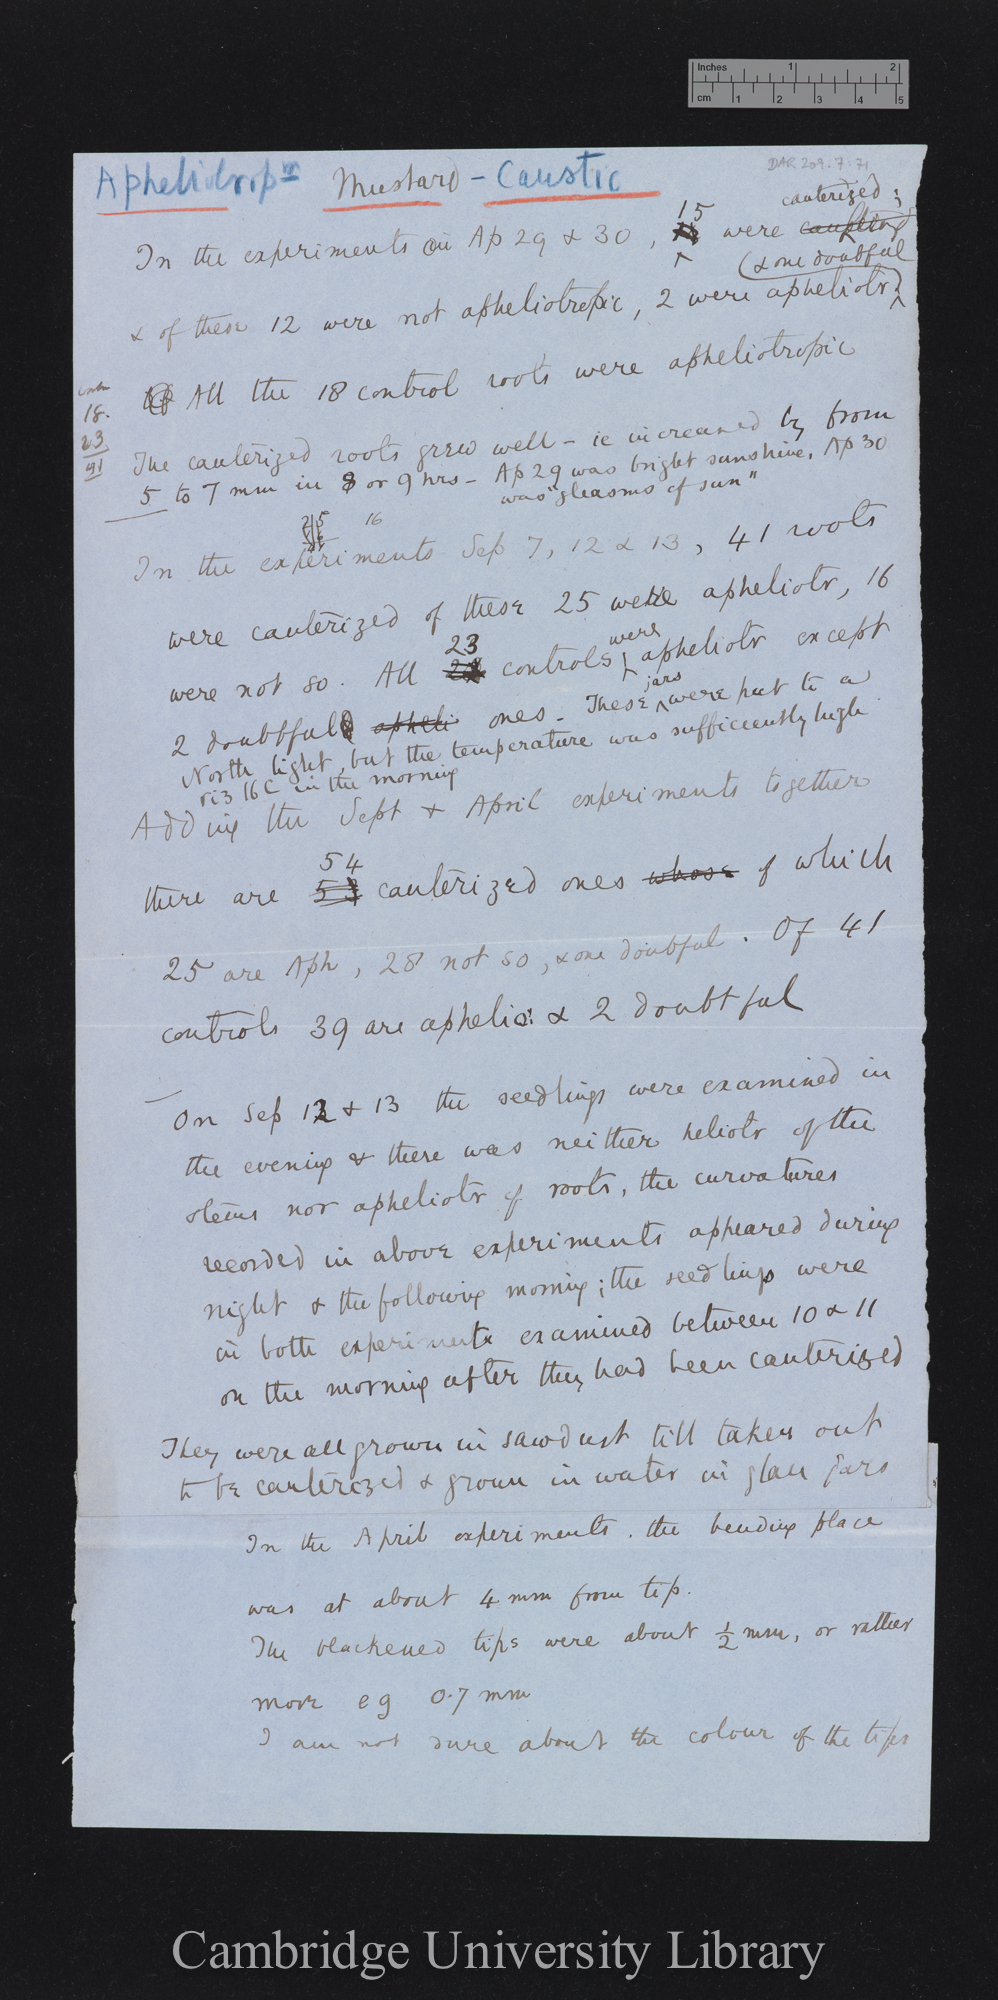 Inches 1 2
cm 1 2 3 4 5
DAR 209.7:71
Apheliotropm Mustard - Caustic
cauterized;
In the experiments on Ap 29 & 30, 15 were
(& one doubtful)
& of these 12 were not apheliotropic, 2 were apheliotr
All the 18 control roots were apheliotropic
18.
23
91
The cauterized roots grew well - ie increased by from
5 to 7 mm in 8 or 9 hrs - Ap 29 was bright sunshine, Ap 30
was "gleasms of sun"
25 16
In the experiments Sep 7, 12 & 13, 41 roots
were cauterized of these 25 were apheliotr, 16
were not so. All 23 controls were apheliotr except
2 doubtful apheli ones - These jars were put to a
North light, but the temperature was sufficiently high
viz 16 C in the morning
Adding the Sept & April experiments together
there are 54 cauterized ones whose of which
25 are Aph, 28 not so, & one doubtful. Of 41
controls 39 are aphelio: & 2 doubtful
On Sep 12 & 13 the seedlings were examined in
the evening & there was neither heliotr of the
stems nor apheliotr of roots, the curvatures
recorded in above experiments appeared during
night & the following morning; the seedlings were
in both experiments examined between 10 & 11
on the morning after they had been cauterized
They were all grown in sawdust till taken out
to be cauterized & grown in water in glass jars
In the April experiments. the bending place
was at about 4 mm from tip.
The blackened tips were about ½ mm, or rather
more eg 0.7 mm
I am not sure about the colour of the tips
Cambridge University Library